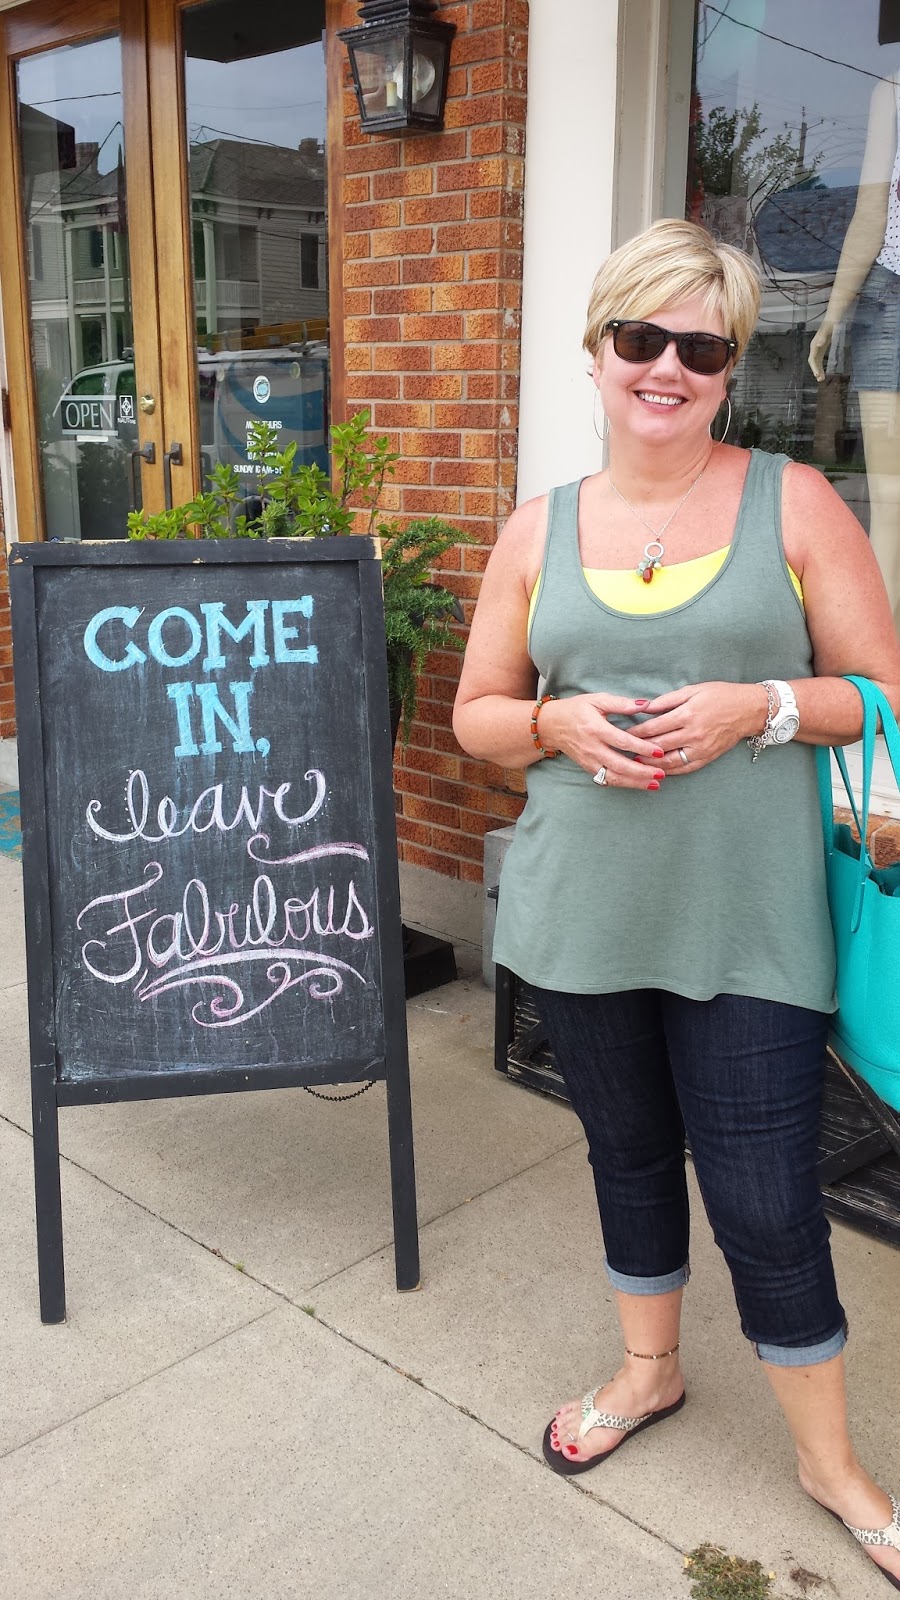 OPEN
SUNDAY 10 AM-5
COME
IN,
leave
Fabulous